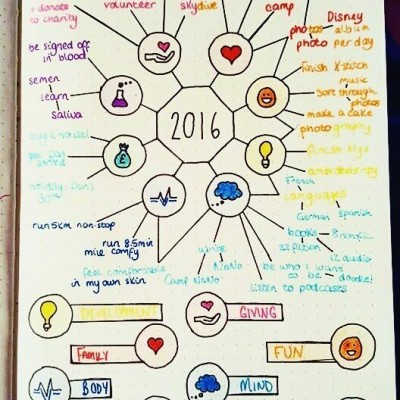 + donate
to charity
volunteer
skydive
camp
Disney
photos album
photo per day
be signed off
in blood
semen
learn
saliva
finish x-stitch
music
sort through
photos
make a cake
photography
2016
French
languages
German Spanish
run 5km non-stop
run 8.5min
mile comfy
feel comfortable
in my own skin
write
NaNo
Camp NaNo
books
8 nonfic
22 fiction
12 audio
be who i want
to be
doodle!
listen to podcasts
DEVELOPMENT
GIVING
FAMILY
FUN
BODY
MIND